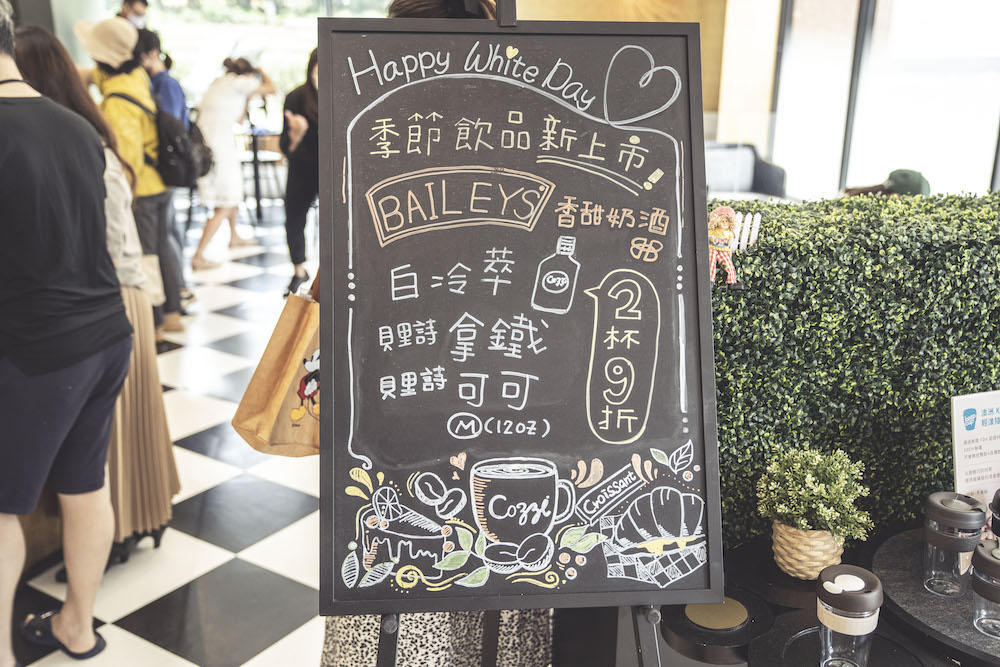 Happy White Day
季節飲品新上市!
BAILEYS
香甜奶酒
白冷萃
Cozzi
貝里詩 拿鐵
貝里詩 可可
M (12oz)
2杯9折
Cozzi
Croissant
澳洲